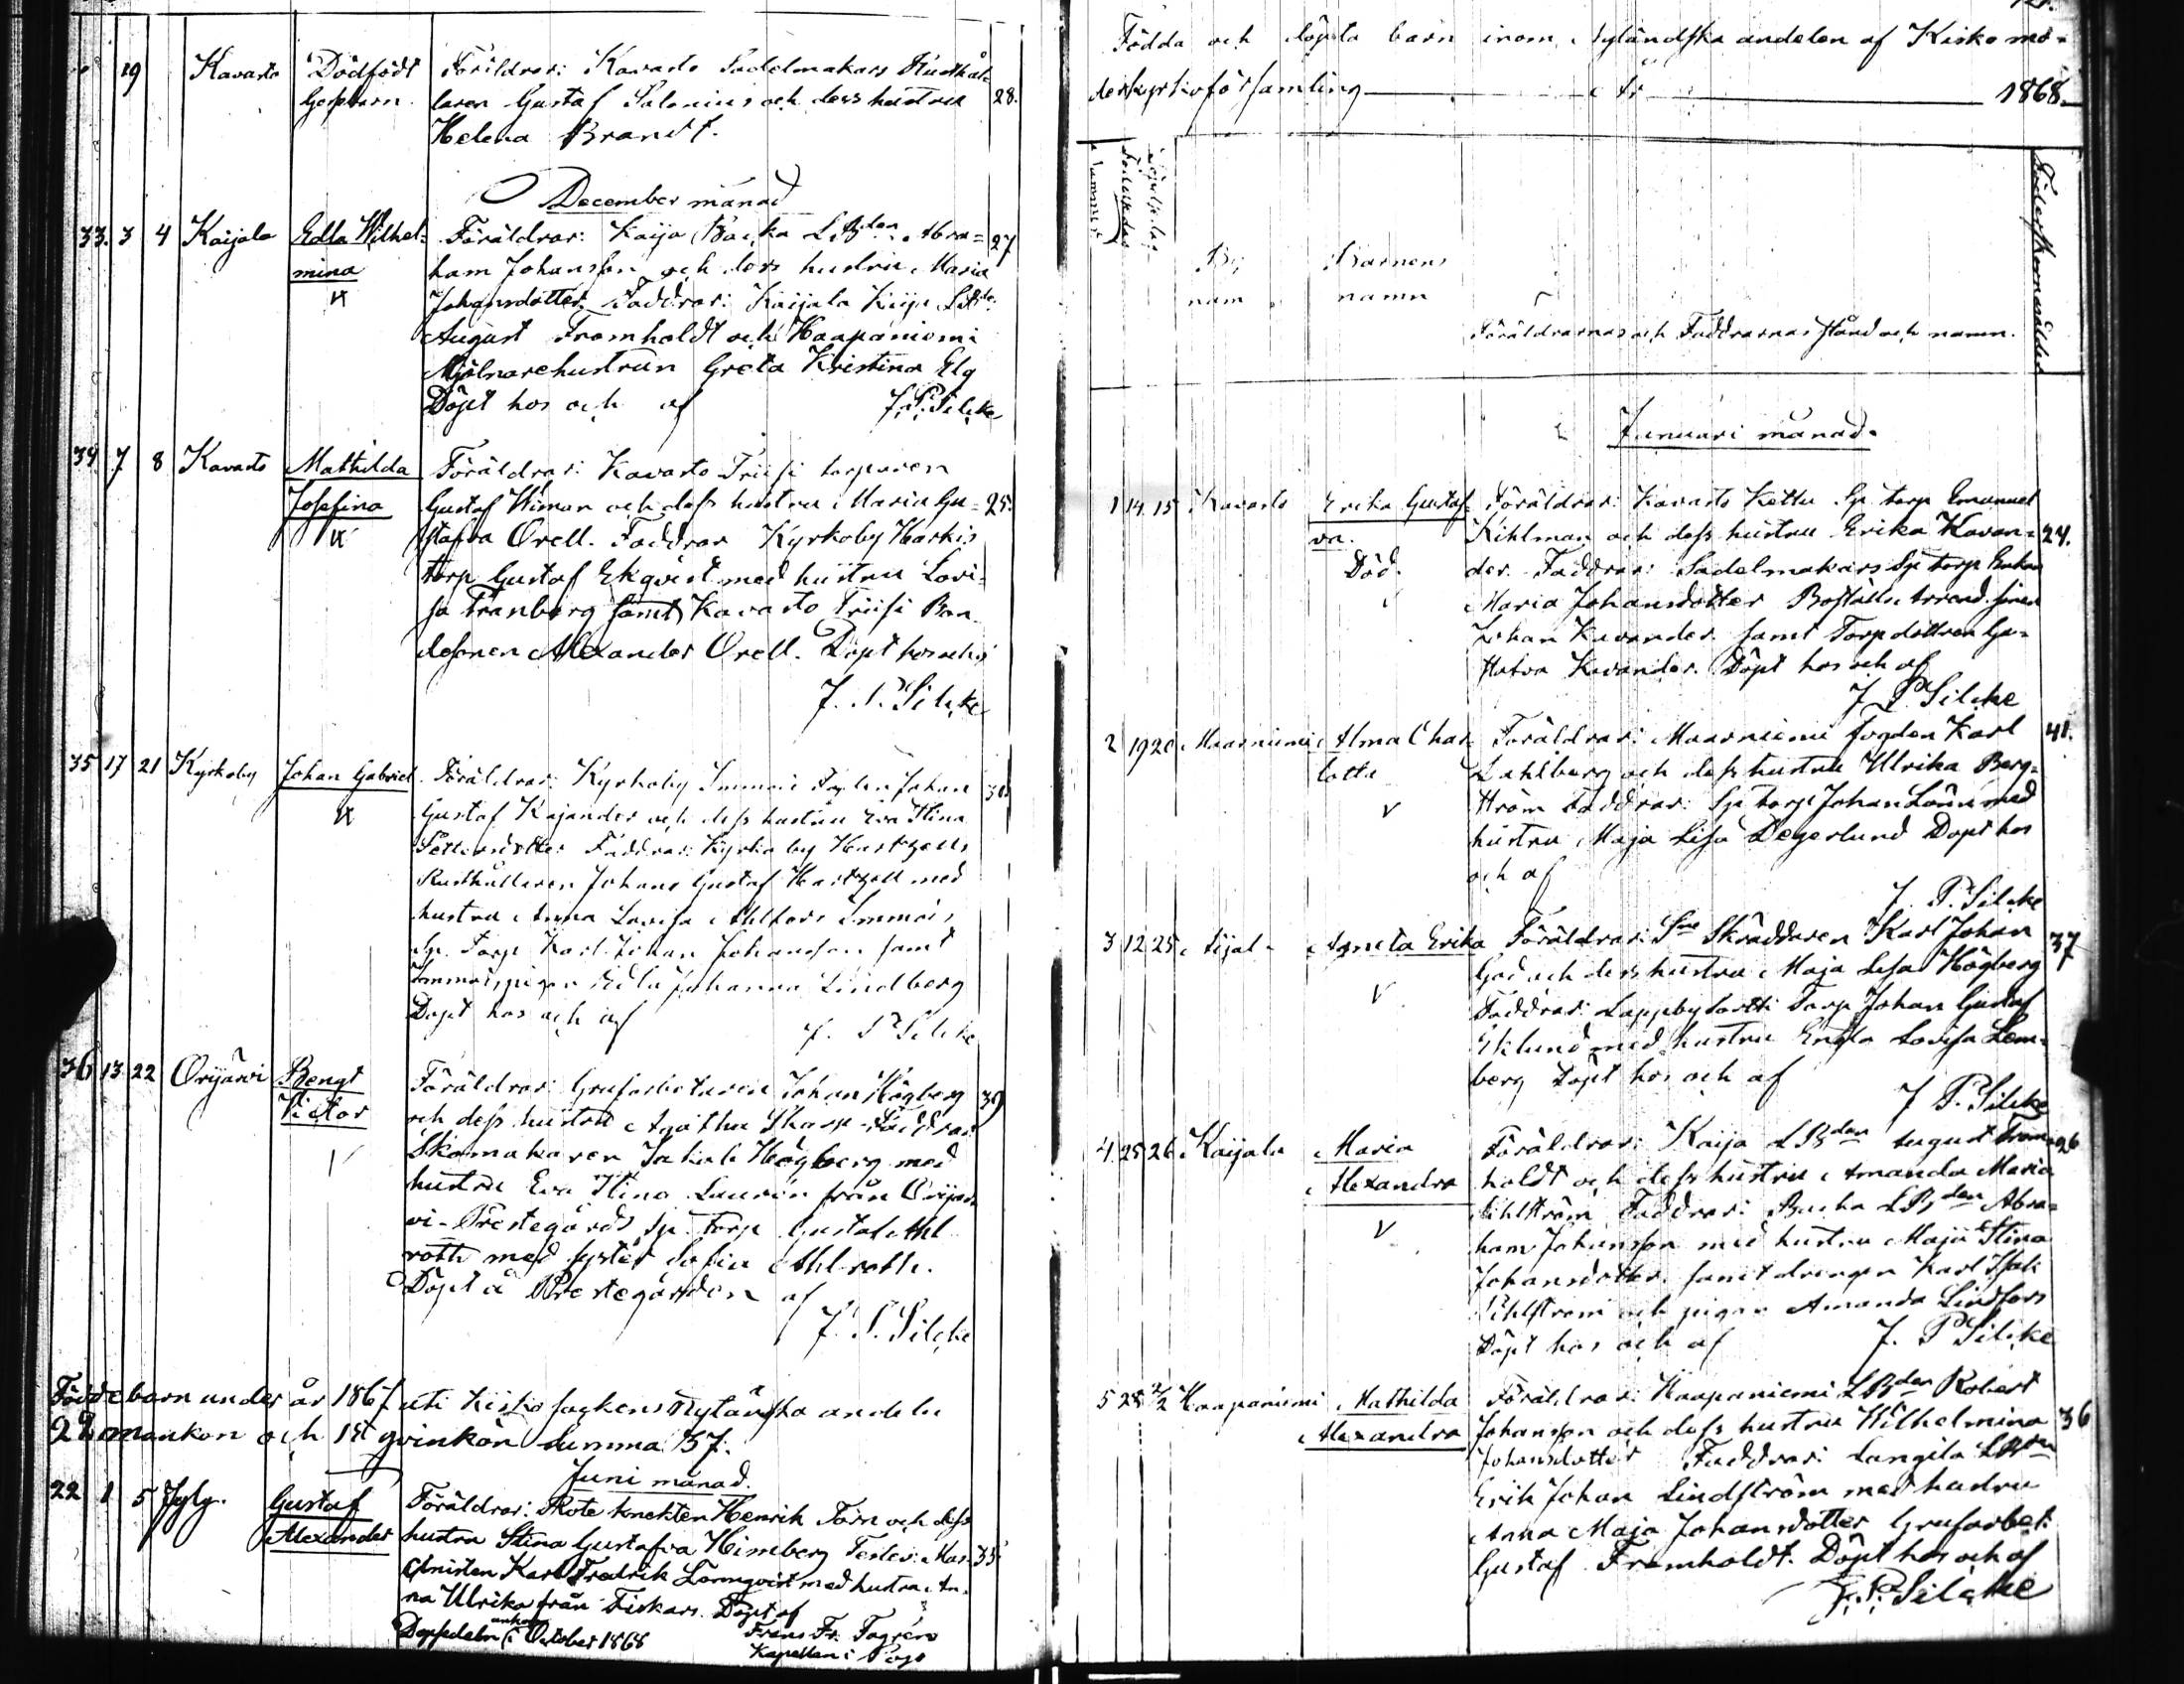 19 Kavasto Dödfödt Föräldrar: Kavasto Sadelmakars Rusthål-
Gossebarn. laren Gustaf Salonius och dess hustru 28.
Helena Brandt.
December månad
33. 3 4 Kaijala Edla Wilhel- Föräldrar: Kaija Backa LBden Abra- 27
mina ham Johansson och dess hustru Maria
Johansdotter. Faddrar: Kaijala Kaija
August Fromholdt och Haapaniemi
Mjölnarehustrun Greta Kristina Elg
Döpt hos och af J. P. Silcke
34 7 8 Kavasto Mathilda Föräldrar: Kavasto Friisi torparen
Josefina Gustaf Wiman och dess hustru Maria Gu- 25.
stafva Orell. Faddrar Kyrkoby Harkis
torp Gustaf Ekqvist med hustru Lovi-
sa Tranberg samt Kavasto Friisi Bon-
desonen Alexander Orell. Döpt hos och af
J. P. Silcke
35 17 21 Kyrkoby Johan Gabriel Föräldrar: Kyrkoby Immois Johan
Gustaf Kajander och dess hustru Eva Stina
Faddrar: Kyrkoby Hartzells
Rusthållaren Johans Gustaf Hartzell med
hustru Anna Lovisa Immois
Sp. Torp Karl Johan Johansson samt
Immois pigan Edla Johanna Lindberg
Döpt hos och af J. P. Silcke
36 13 22 Orijärvi Bengt Föräldrar: Grufarbetaren Johan Högberg 39
Victor och dess hustru Agatha Skarp Faddrar
Skomakaren Jakob Högberg med
hustru Eva Stina Laurén från Orijär-
vi - Prestegårds Sp. Torp Gustaf Ahl-
roth med syster Sofia Ahlroth.
Döpt å Prestegården af
J. P. Silcke
Födde barn under år 1867 uti Kisko sockens Nyländska andelen
22 mankön och 15 qvinkön summa 37.
Juni månad.
22 1 5 Jyly. Gustaf Föräldrar: Rote knekten Henrik Törn och dess
Alexander hustru Stina Gustafva Himberg Testes: Mas- 35
chinisten Karl Fredrik Lönnqvist med hustru An-
na Ulrika från Fiskars. Döpt af
Dopsedeln ankom i October 1868 Frans Fr. Fagrén
Kapellan i Pojo
Födda och döpta barn inom Nyländska andelen af Kisko mo-
derkyrkoförsamling år 1868.
By Barnens
namn namn
Föräldrarnas och Faddrarnas stånd och namn.
Föderskornas ålder
Januari månad.
1 14 15 Kavasto Erika Gustaf- Föräldrar: Kavasto Kettu Sp torp Emanuel
va. Kihlman och dess hustru Erika Kavan- 24.
Död. der. Faddrar: Sadelmakars Sp torp Enkan
Maria Johansdotter Boställs Arrend. sonen
Johan Kavander samt Torpdottren Gu-
stafva Kavander. Döpt hos och af
J. P. Silcke
2 19 20 Maarniemi Alma Char- Föräldrar: Maarniemi fogden Karl 41.
lotta Dahlberg och dess hustru Ulrika Berg-
ström Faddrar: Sp torp Johan Lönn med
hustru Maja Lisa Degerlund Döpt hos
och af
J. P. Silcke
3 12 25 Aijala Agneta Erika Föräldrar: Sne Skräddaren Karl Johan 37
God och dess hustru Maja Lisa Högberg
Faddrar: Lappby Torp Johan Gustaf
Eklund med hustru Engla Lovisa Lem-
berg Döpt hos och af
J P. Silcke
4 25 26 Kaijala Maria Föräldrar: Kaija LBden August From- 26
Alexandra holdt och dess hustru Amanda Maria
Sihlström Faddrar: Backa LBden Abra-
ham Johansson med hustru Maja Stina
Johansdotter samt drengen Karl Isak
Sihlström och pigan Amanda Lindfors
Döpt hos och af J. P. Silcke
5 28 2/2 Haapaniemi Mathilda Föräldrar: Haapaniemi LBden Robert
Alexandra Johansson och dess hustru Wilhelmina 36
Johansdotter Faddrar: Langila LBden
Erik Johan Lindström med hustru
Anna Maja Johansdotter Grufarbet.
Gustaf Fromholdt. Döpt hos och af
J. P. Silcke